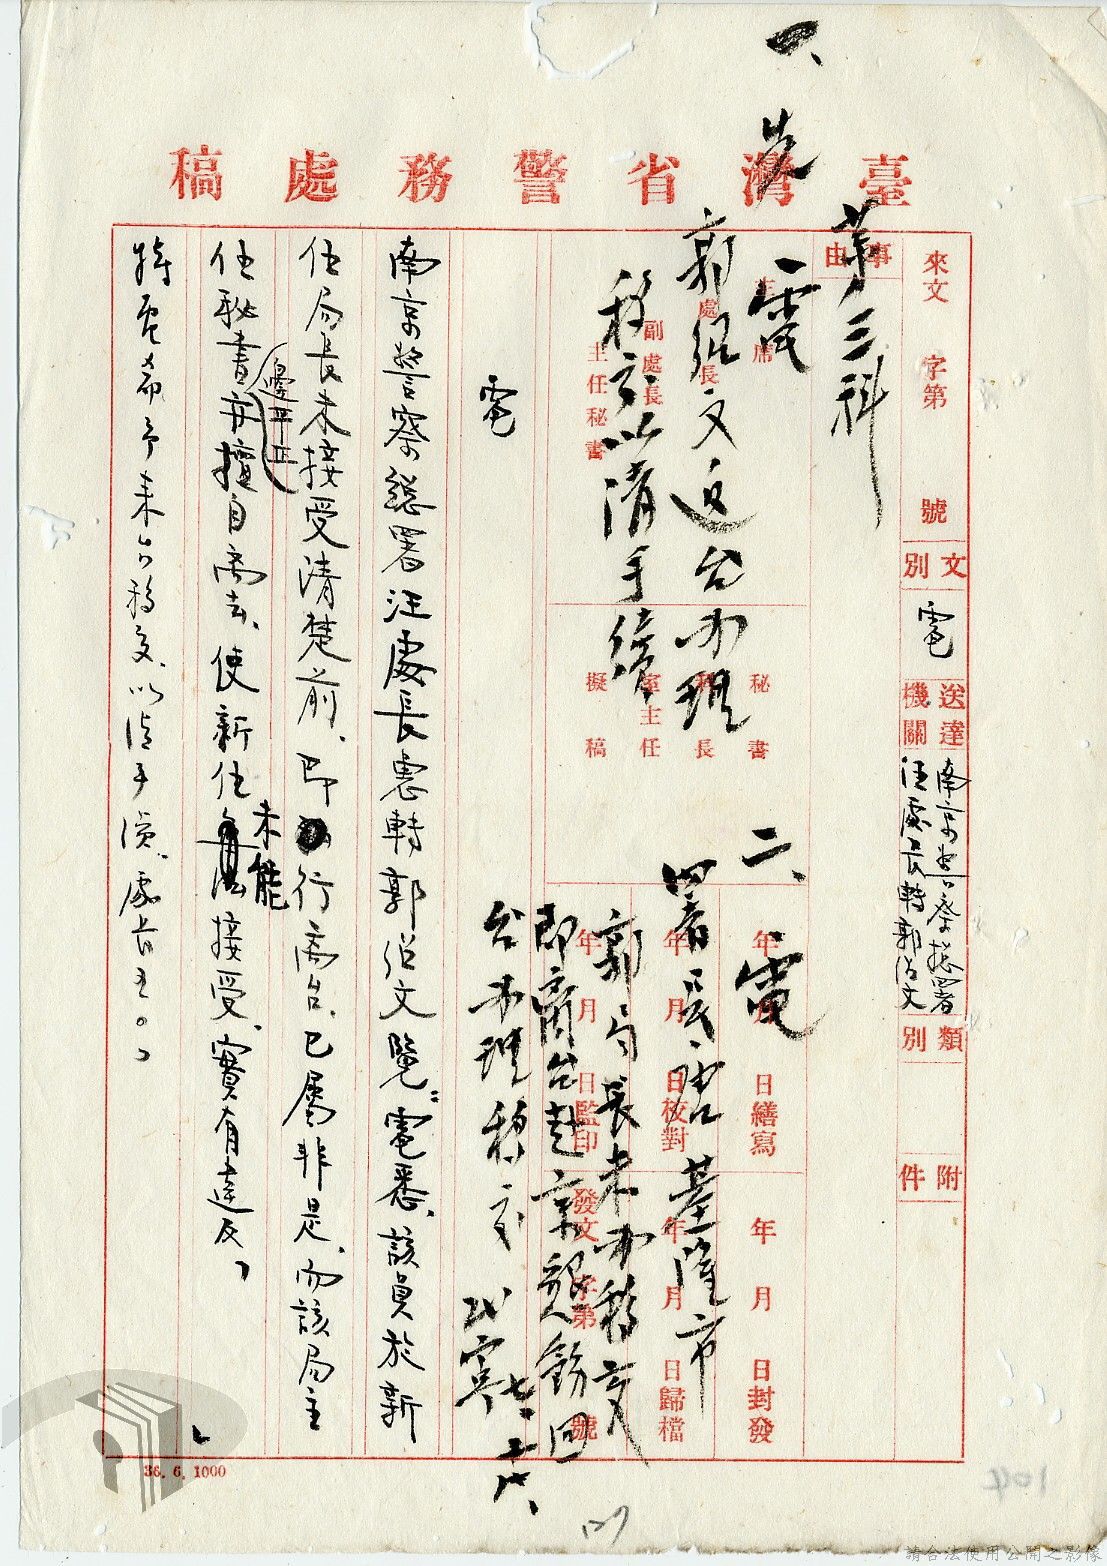 臺灣省警務處稿
來文 字第 號
文別 電
送達機關 南京警察總署汪處長轉郭紹文
類別
附件
事由
主席
處長
副處長
主任秘書
秘書
科長
室主任
擬稿
年 月 日繕寫
年 月 日校對
年 月 日監印
年 月 日封發
年 月 日歸檔
發文 字第 號
第三科
一、先電
郭紹文返台办理
移交以清手續
二、電
署長唐基隆市
郭局長未办移交
即离台赴京懇飭回
台办理移交
七、十六、
電
南京警察總署汪處長惠轉郭紹文覽：電悉、該員於新
任局長未接受清楚前、即行离台、已屬非是、而該局主
任秘書邊平正亦擅自离去、使新任未能接受、實有違反、
特電希予來台移交、以清手續、處長王。。
36. 6. 1000
104
請合法使用公開之影像